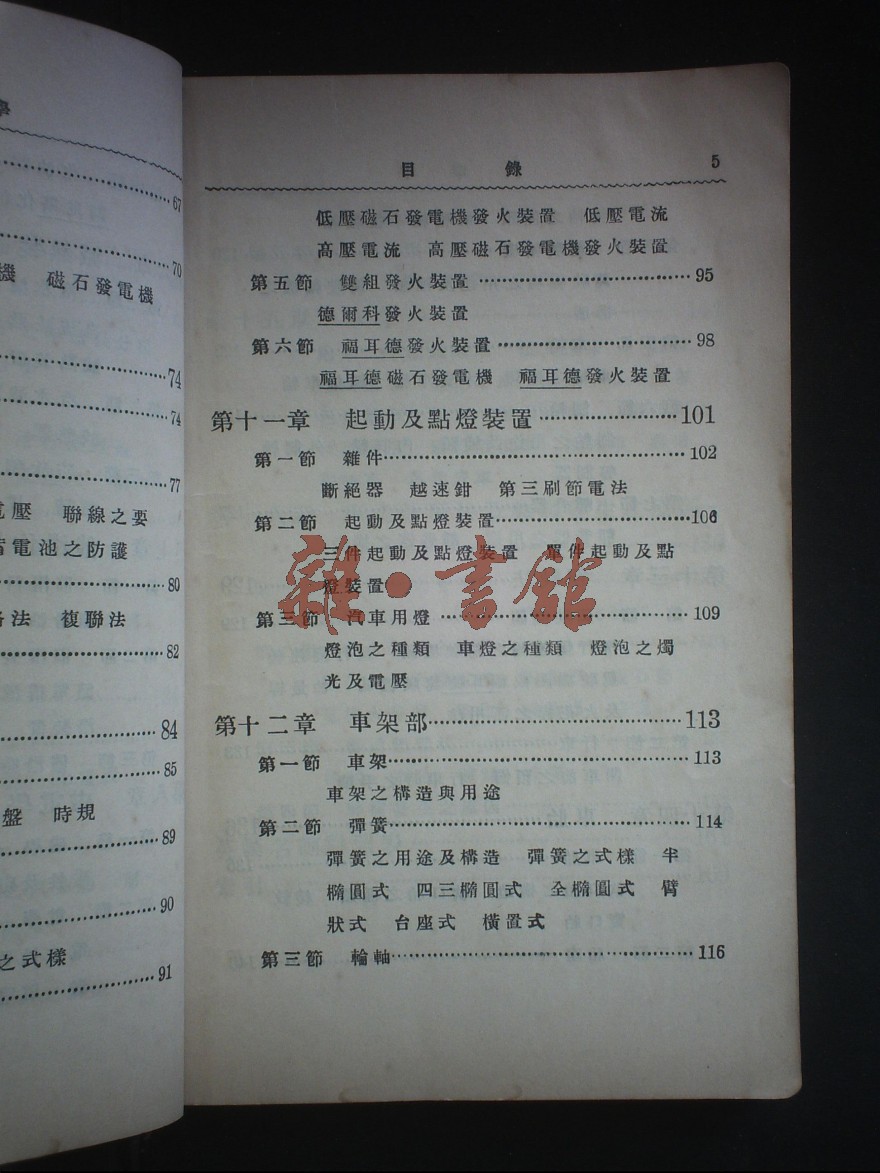 學
67
70
機 磁石發電機
74
74
77
電壓 聯線之要
蓄電池之防護
80
路法 複聯法
82
84
85
盤 時規
89
90
之式樣
91
目錄 5
低壓磁石發電機發火裝置 低壓電流
高壓電流 高壓磁石發電機發火裝置
第五節 雙組發火裝置……95
德爾科發火裝置
第六節 福耳德發火裝置……98
福耳德磁石發電機 福耳德發火裝置
第十一章 起動及點燈裝置……101
第一節 雜件……102
斷絕器 越速鉗 第三刷節電法
第二節 起動及點燈裝置……106
三件起動及點燈裝置 單件起動及點
燈裝置
第三節 汽車用燈……109
燈泡之種類 車燈之種類 燈泡之燭
光及電壓
第十二章 車架部……113
第一節 車架……113
車架之構造與用途
第二節 彈簧……114
彈簧之用途及構造 彈簧之式樣 半
橢圓式 四三橢圓式 全橢圓式 臂
狀式 台座式 橫置式
第三節 輪軸……116
雜·書館